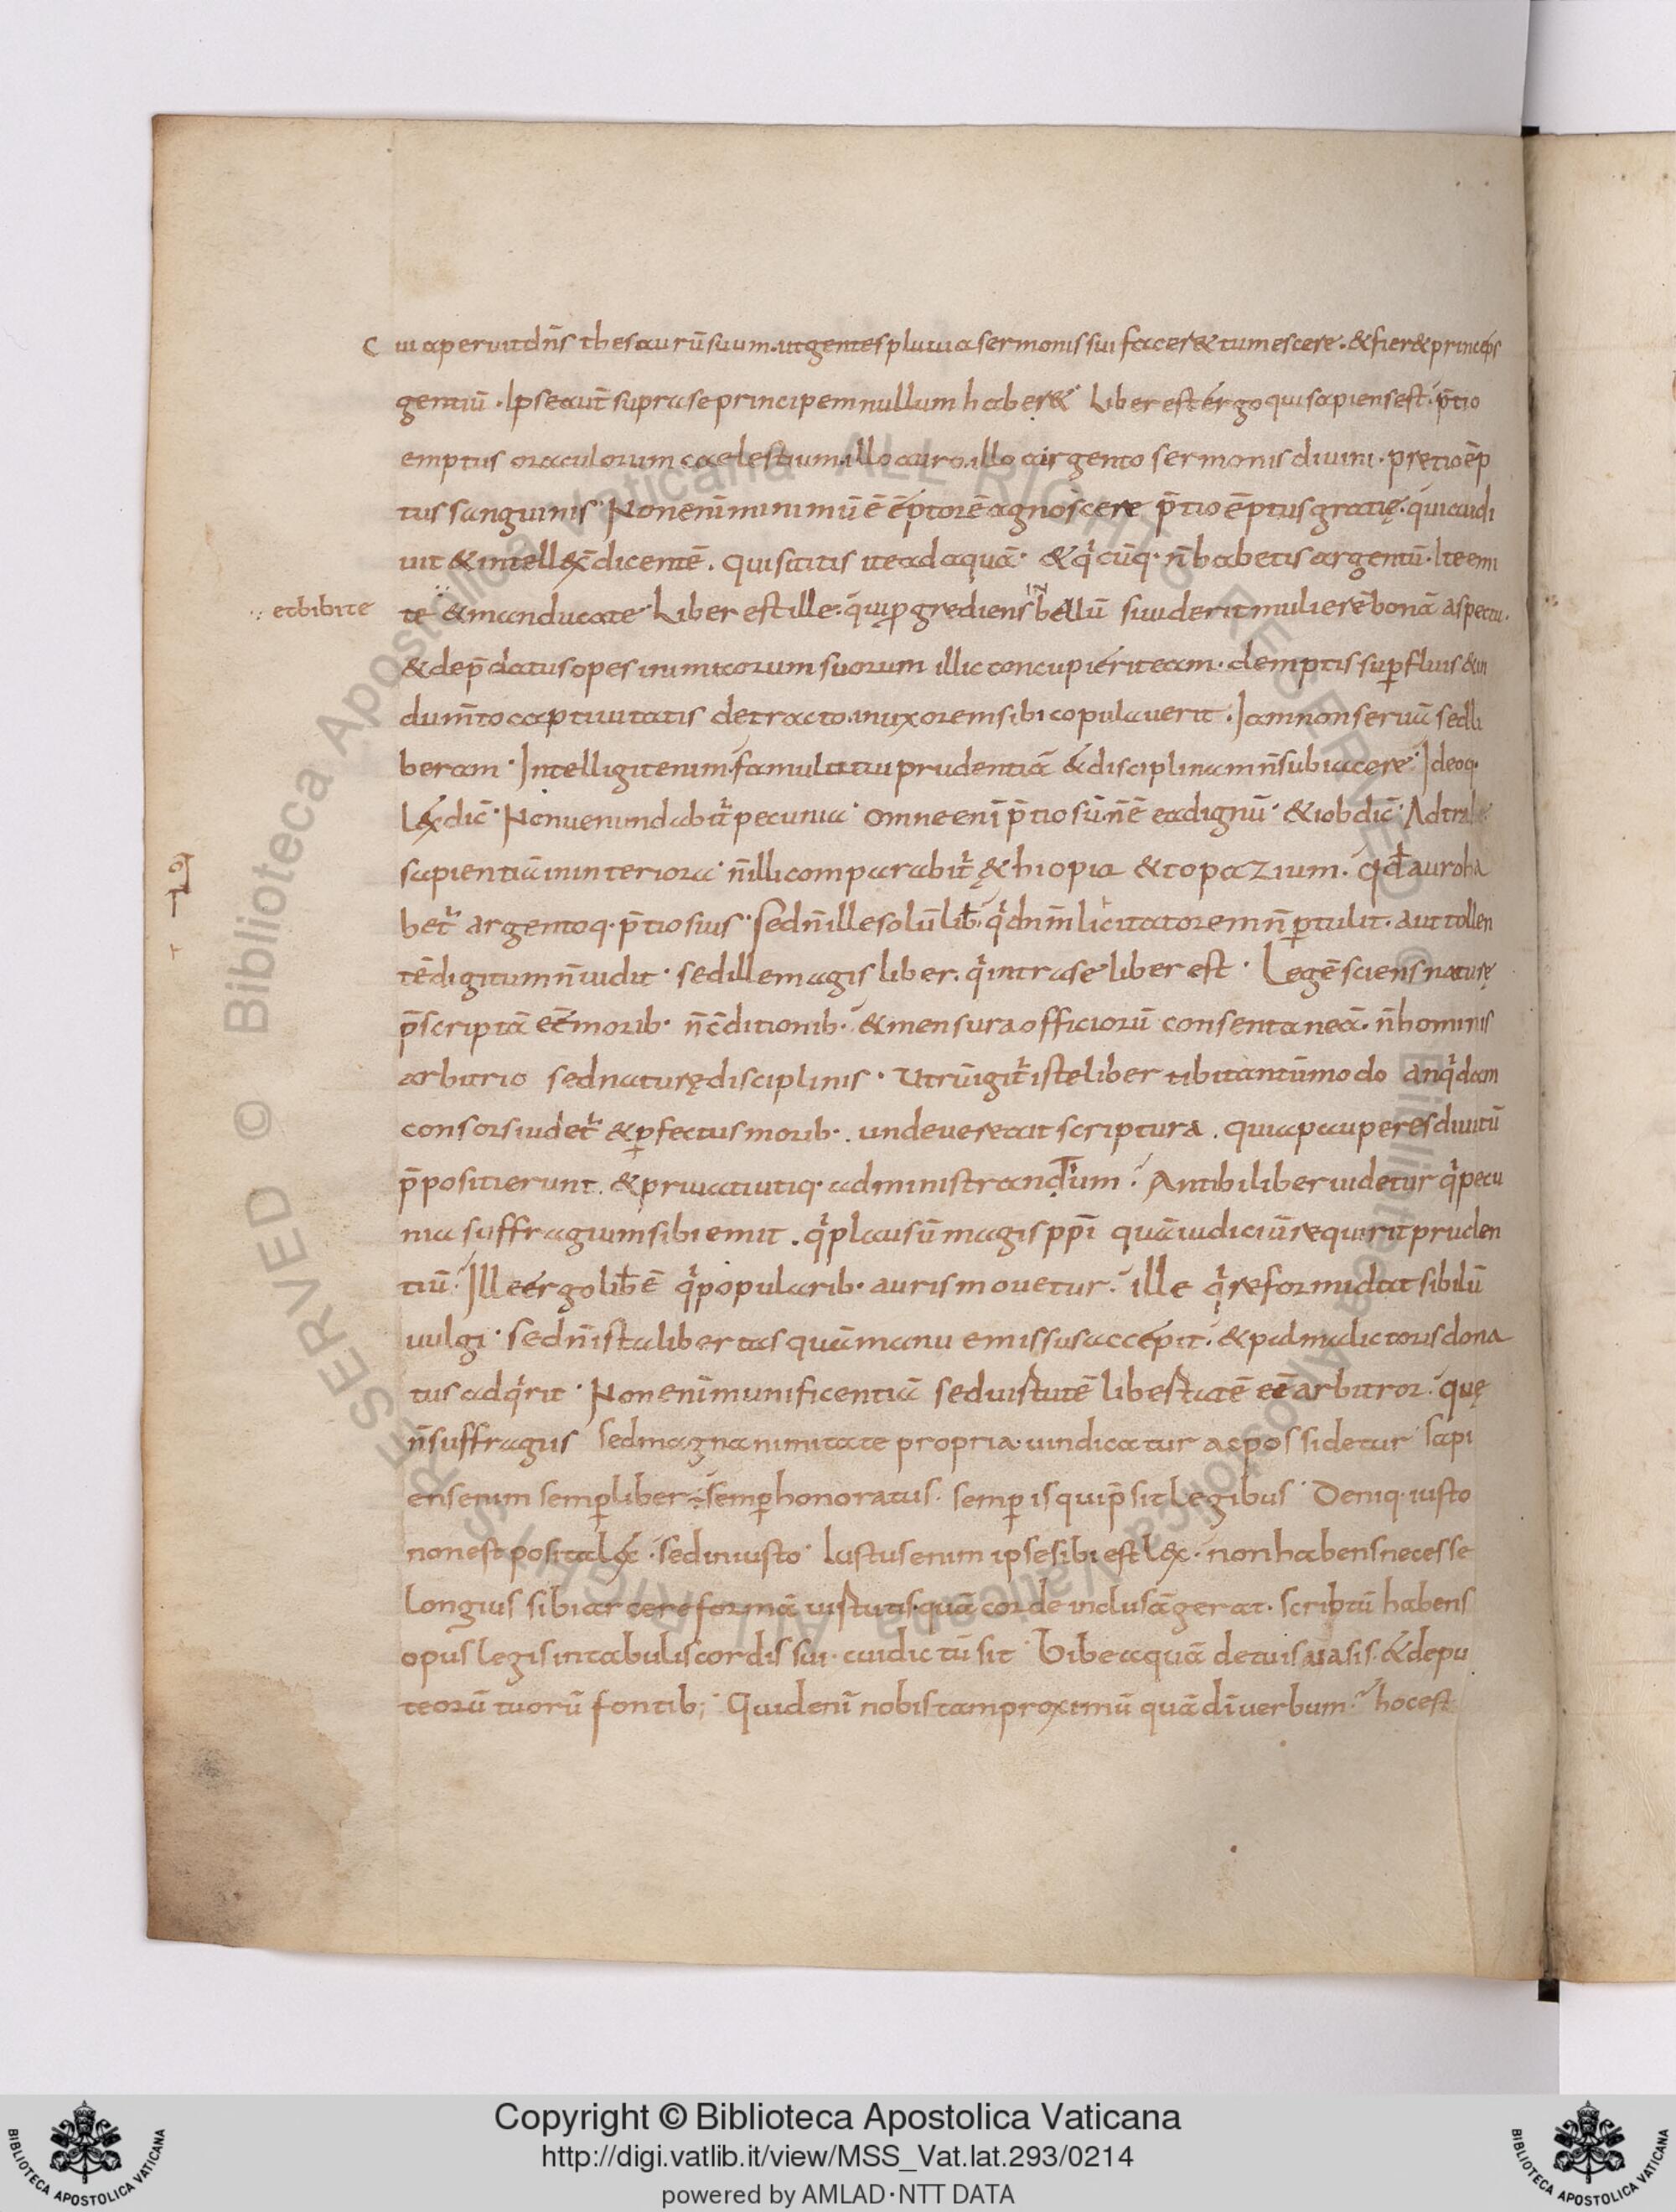 Cui aperuit dn̄s thesaurū suum. ut gentes pluuia sermonis sui faceret tumescere. & fieret princeps
gentiū. Ipse aut̄ supra se principem nullum haberet. Liber est ergo qui sapiens est. p̄tio
emptus oraculorum caelestium. illo auro. illo argento sermonis diuini. pretio ēp
tus sanguinis. Non enī minimū ē ēptorē agnoscere p̄tio ēptus gratię. qui audi
uit & intellex̄ dicentē. Qui sititis ite ad aquā. & q'cūq. n̄ habetis argentū. Ite emi
.. etbibite
te & manducate. Liber est ille. qui p̱grediens in bellū si uiderit mulierē bonā aspectu.
& dep̄datus opes inimicorum suorum illic concupierit eam. demptis sup̱fluis & in
dum̄to captiuitatis detracto. in uxorem sibi copulauerit. Iam non seruā sed li
beram. Intelligit enim famulatui prudentiā & disciplinam n̄ subiacere. Ideoq.
Lex dic̄. Non uenundabit̄ pecunia. Omne enī p̄tiosū n̄ ē ea dignū. & iob dic̄. Adtrahe
sapientiā in interiora. n̄ illi comparabit̄ ęthiopia & topazium. Qd̄ auro ha
bet̄ argentoq. p̄tiosius. Sed n̄ ille solū lib̄. q' dn̄m licitatorem n̄ p̱tulit. aut tollen
tē digitum n̄ uidit. sed ille magis liber. q' intra se liber est. Legē sciens naturę
p̄scriptā eē morib. n̄ c̄ditionib. & mensura officiorū consentaneā. n̄ hominis
arbitrio sed naturę disciplinis. Utrū igit̄ iste liber tibi tantūmodo an q'dam
consors uidet̄ & p̱fectus morib. unde uere ait scriptura. quia pauperes diuitū
p̄positi erunt. & priuati utiq. administrandum. An tibi liber uidetur q' pecu
nia suffragium sibi emit. q' plausū magis ppl̄i quā iudiciū requirit pruden
tiū. Ille ergo lib̄ ē q' popularib. auris mouetur. ille q' reformidat sibilū
uulgi. Sed n̄ ista libertas quā manu emissus accepit. & palma lictoris dona
tus adq'rit. Non enī munificentiā sed uirtutē libertatē eē arbitror. quę
n̄ suffragiis sed magnanimitate propria. uindicatur ac possidetur. Sapi
ens enim semp̱ liber. semp̱ honoratus. semp̱ is qui p̄sit legibus. Deniq. iusto
non est posita lex. sed iniusto. Iustus enim ipse sibi est lex. non habens necesse
longius sibi arcere formā uirtutis. quā corde inclusā gerat. scriptū habens
opus legis in tabulis cordis sui. cui dictū sit. Bibe aquā de tuis uasis. & de pu
teorū tuorū fontib; Quid enī nobis tam proximū quā dī uerbum. hoc est
Copyright © Biblioteca Apostolica Vaticana
http://digi.vatlib.it/view/MSS_Vat.lat.293/0214
powered by AMLAD·NTT DATA
BIBLIOTECA APOSTOLICA VATICANA
BIBLIOTECA APOSTOLICA VATICANA
© Biblioteca Apostolica Vaticana ALL RIGHTS RESERVED © Biblioteca Apostolica Vaticana ALL RIGHTS RESERVED